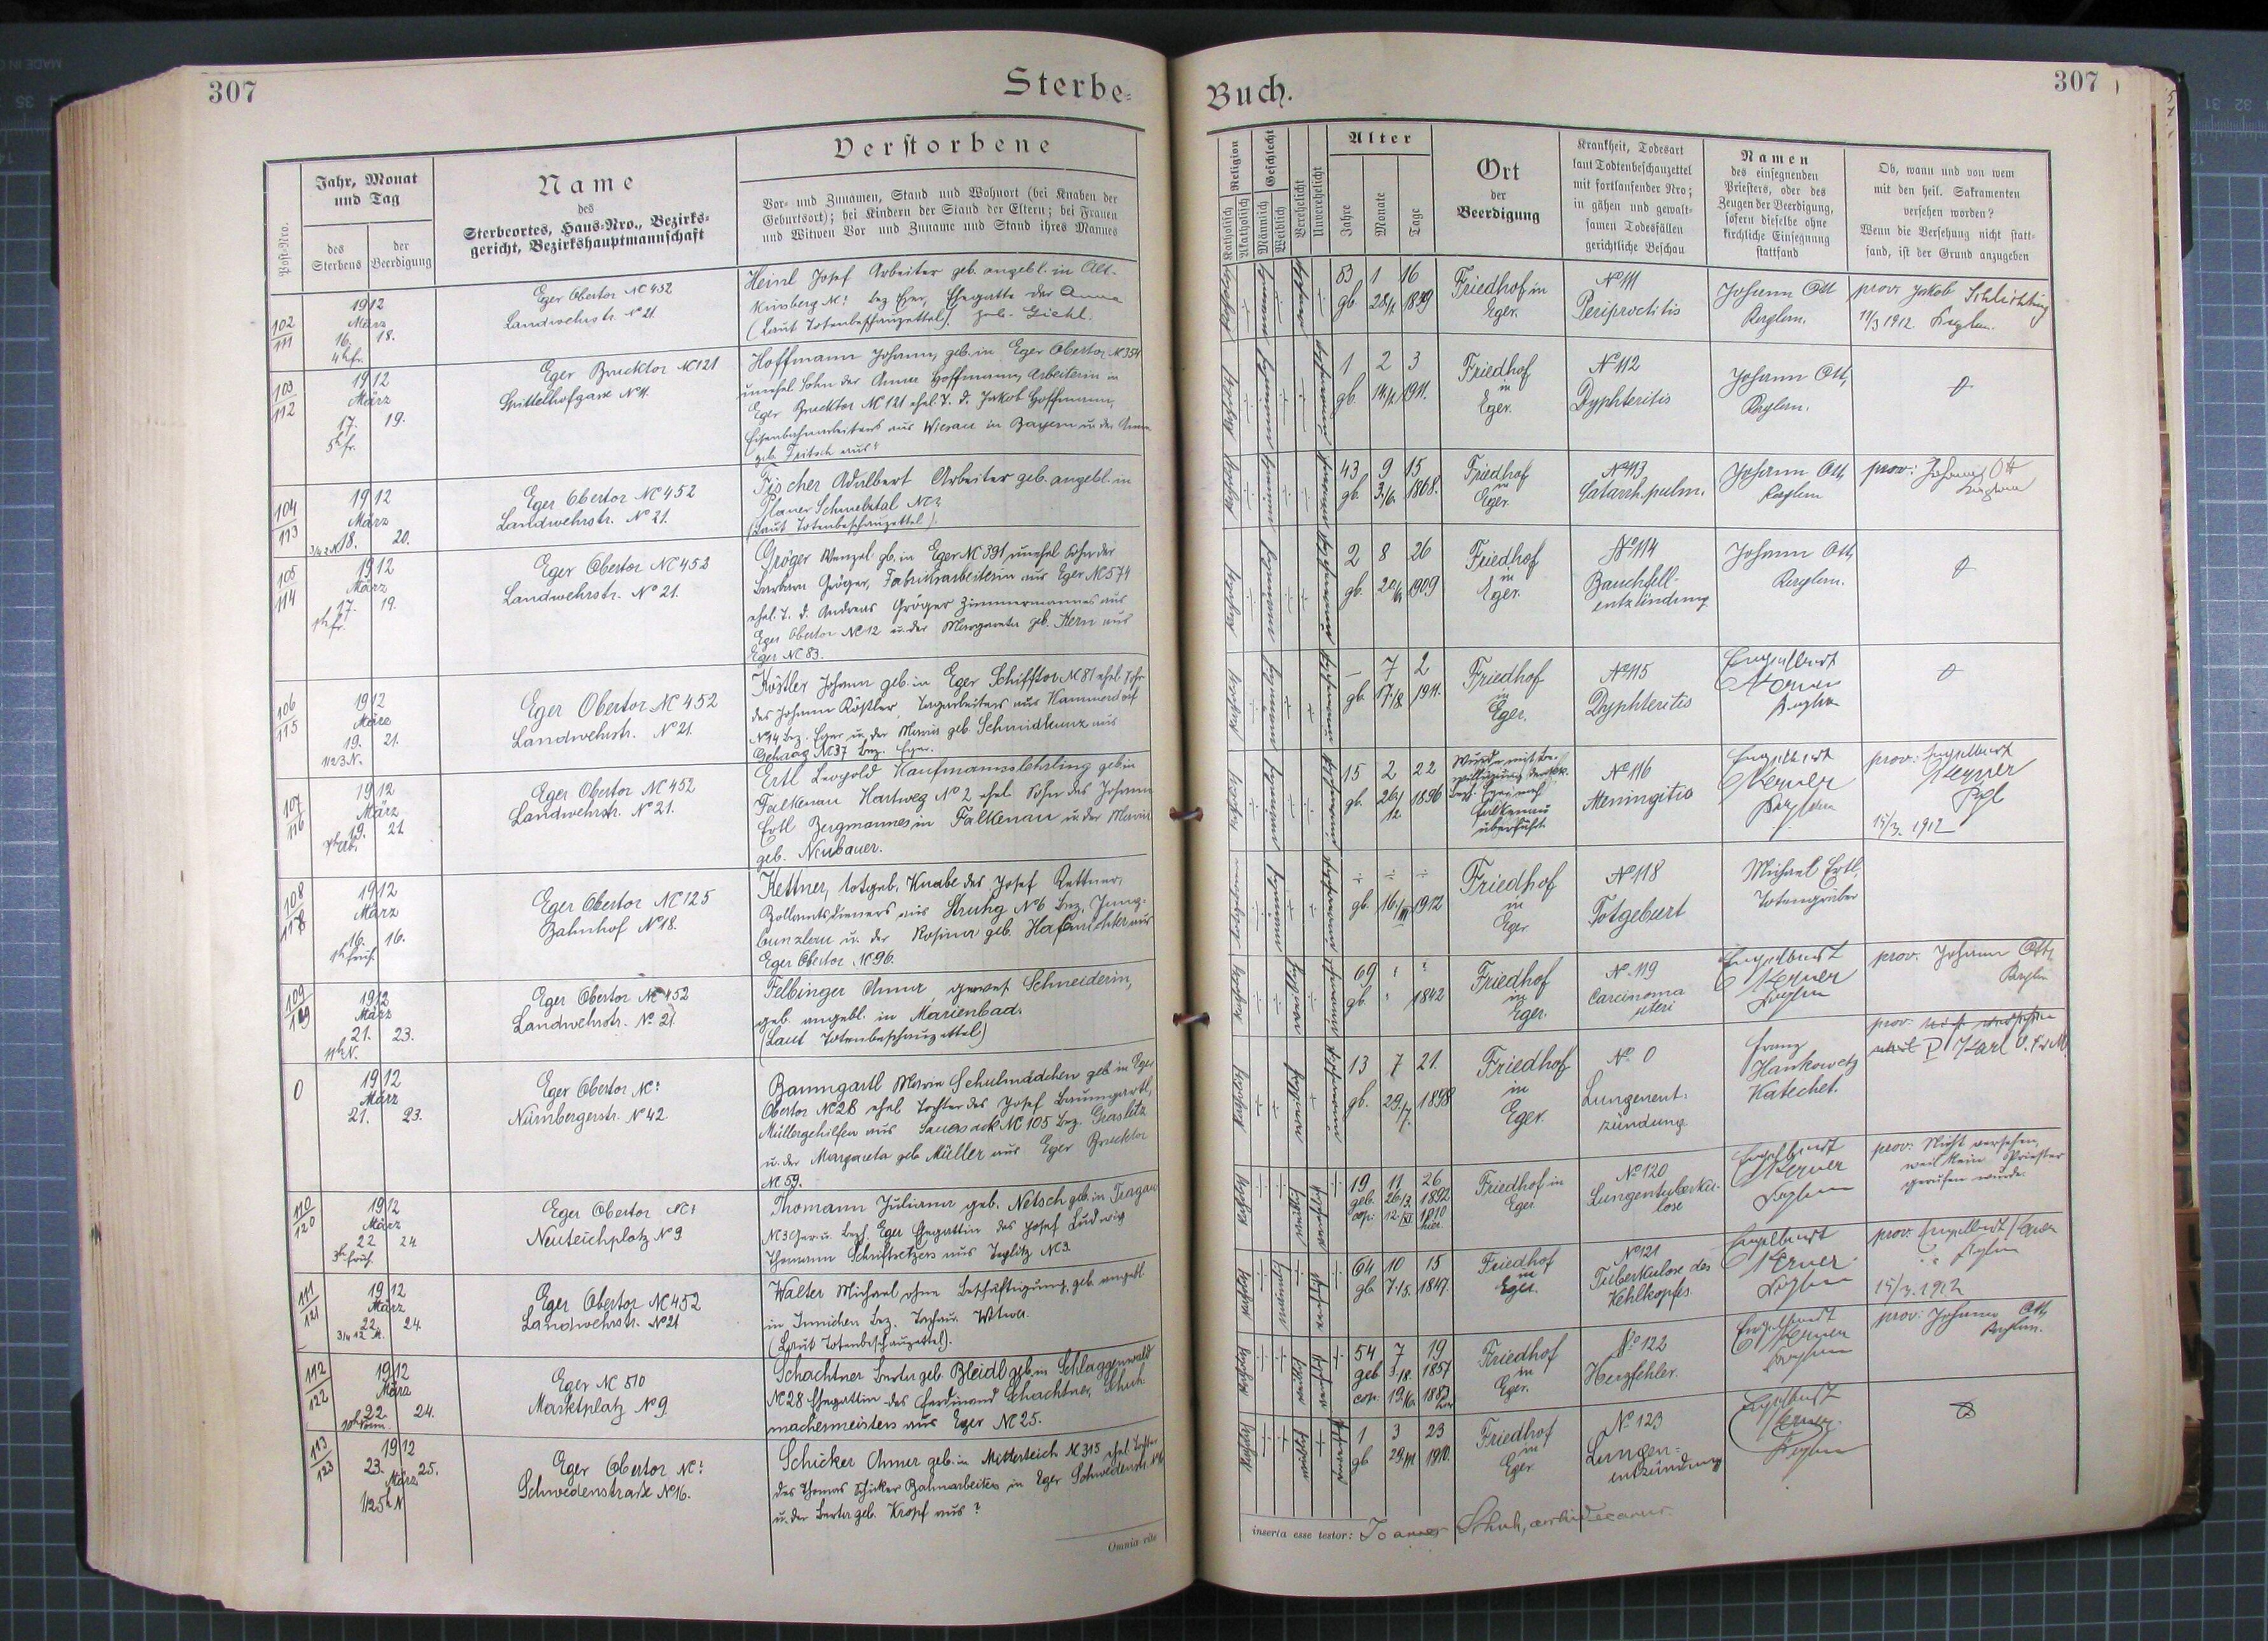 307
Sterbe=
Buch.
307
Post-Nro.
Jahr, Monat
und Tag
des
Sterbens
der
Beerdigung
Name
des
Sterbeortes, Haus-Nro., Bezirks=
gericht, Bezirkshauptmannschaft
Verstorbene
Vor- und Zunamen, Stand und Wohnort (bei Knaben der
Geburtsort); bei Kindern der Stand der Eltern; bei Frauen
und Witwen Vor und Zuname und Stand ihres Mannes
Religion
Katholisch
Akatholisch
Geschlecht
Männlich
Weiblich
Verehelicht
Unverehelicht
Alter
Jahre
Monate
Tage
Ort
der
Beerdigung
Krankheit, Todesart
laut Todtenbeschauzettel
mit fortlaufender Nro;
in gähen und gewalt-
samen Todesfällen
gerichtliche Beschau
Namen
des einsegnenden
Priesters, oder des
Zeugen der Beerdigung,
sofern dieselbe ohne
kirchliche Einsegnung
stattfand
Ob, wann und von wem
mit den heil. Sakramenten
versehen worden?
Wenn die Versehung nicht statt-
fand, ist der Grund anzugeben
102
111
1912
März
16. 18.
4h fr.
Eger Obertor NC 452
Landwehrstr. No 21
Heinl Josef Arbeiter geb. angebl. in Alt-
Kinsberg NC? Bez Eger, Ehegatte der Anna
(Laut Totenbeschauzettel). geb. Giehl.
1 16
gb. 1839
Friedhof in
Eger.
No 111
Periproctitis
Johann Ott
Kaplan.
prov. Jakob Schlichting
11/3 1912. Kaplan.
103
112
1912
März
17. 19.
5h fr.
Eger Brucktor NC 121
Spittelhofgasse No 11.
Hoffmann Johann, geb. in Eger Obertor NC 354
unehel. Sohn der Anna Hoffmann, Arbeiterin in
Eger Brucktor NC 121 ehel. T. d. Jakob Hoffmann,
Eisenbahnarbeiters aus Wiesau in Bayern u. der Anna
geb. Fritsch aus?
1 2 3
gb. 14/1 1911.
Friedhof
in
Eger.
No 112
Dyphteritis
Johann Ott,
Kaplan.
0
104
113
1912
März
18. 20.
Eger Obertor NC 452
Landwehrstr. No 21.
Fischer Adalbert Arbeiter geb. angebl. in
Planer NC?
(Laut Totenbeschauzettel).
43 9 15
gb. 3./6. 1868.
Friedhof
in
Eger.
No 113
Catarrh. pulm.
Johann Ott,
Kaplan
prov: Johann Ott
Kaplan
105
114
1912
März
17. 19.
1h fr.
Eger Obertor NC 452
Landwehrstr. No 21.
Gröger Wenzel gb. in Eger NC 391 unehel Sohn der
Barbara Gröger, Fabriksarbeiterin aus Eger NC 574
ehel. T. d. Andreas Gröger Zimmermannes aus
Eger Obertor NC 12 u. der Margareta geb. Kern aus
Eger NC 83.
2 8 26
gb. 1909
Friedhof
in
Eger.
No 114
Bauchfell-
entzündung
Johann Ott,
Kaplan.
0
106
115
1912
März
19. 21.
1/2 3 N.
Eger Obertor NC 452
Landwehrstr. No 21.
Köstler Johann geb. in Eger Schifftor NC 81 ehel. Sohn
des Johann Köstler, Tagarbeiters aus Kammerdorf
No 14 Bez. Eger u. der Maria geb. Schmidkunz aus
Gehaag NC 37 Bez. Eger.
– 7 2
gb. 17./8. 1911.
Friedhof
in
Eger.
No 115
Dyphteritis
Engelbert
Kaplan
0
107
116
1912
März
19. 21
Eger Obertor NC 452
Landwehrstr. No 21.
Ertl Leopold Kaufmannslehrling geb. in
Falkenau Hartweg No 2 ehel. Sohn des Johann
Ertl Bergmannes in Falkenau u. der Maria
geb. Neubauer.
15 2 22
gb. 26./12. 1896
Wurde mit Be-
willigung der k.k.
Bezh. Eger nach
Falkenau
überführt.
No 116
Meningitis
Engelbert
Kaplan
prov: Engelbert
15/3. 1912
108
118
1912
März
16. 16.
1h früh.
Eger Obertor NC 125
Bahnhof No 18.
Kettner, totgeb. Knabe des Josef Kettner,
Zollamtsdieners aus Struhg No 6 Bez. Jung-
bunzlau u. der Rosina geb. Hafenrichter aus
Eger Obertor NC 96.
gb. 16./III 1912
Friedhof
in
Eger
No 118
Totgeburt
Michael Ertl,
Totengräber
109
119
1912
März
21. 23.
11h N.
Eger Obertor NC 452
Landwehrstr. No 21.
Felbinger Anna, gewes. Schneiderin,
geb. angebl. in Marienbad.
(Laut Totenbeschauzettel)
69 ? ?
gb. ? 1842
Friedhof
in
Eger.
No. 119
Carcinoma
uteri
Engelbert
Kaplan
prov. Johann Ott,
Kaplan
0
1912
März
21. 23.
Eger Obertor NC?
Nürnbergerstr. No 42.
Baumgartl Maria Schulmädchen geb. in Eger
Obertor NC 28 ehel. Tochter des Josef Baumgartl,
Müllergehilfen aus Sauersack NC 105 Bez. Graslitz
u. der Margareta geb. Müller aus Eger Brucktor
NC 59.
13 7 21.
gb. 29./7. 1898
Friedhof
in
Eger.
No. 0
Lungenent-
zündung
Franz
Hankowetz
Katechet.
prov: nicht versehen
weil P. Karl
110
120
1912
März
22 24
3h früh.
Eger Obertor NC?
Neuteichplatz No 9
Thomann Juliana geb. Netsch geb. in Tragau
NC 3 Ger. u. Bezh. Eger Ehegattin des Josef Ludwig
Thomann Schriftsetzers aus NC 3.
19 11 26
geb. 26./3. 1892
cop. 12./XI 1910
hier.
Friedhof in
Eger
No 120
Lungentuberku-
lose
Engelbert
Kaplan
prov: Nicht versehen,
weil kein Priester
gerufen wurde.
111
121
1912
März
22. 24.
Eger Obertor NC 452
Landwehrstr. No 21
Walter Michael ohne Beschäftigung, geb. angebl.
in Innichen Bez. Tachau. Witwer.
(Laut Totenbeschauzettel).
64 10 15
gb 7./5. 1847.
Friedhof
in
Eger.
No 121
Tuberkulose des
Kehlkopfs
Engelbert
Kaplan
prov. Engelbert
Kaplan
15/3. 1912
112
122
1912
März
22. 24.
10h Vorm.
Eger NC 510
Marktplatz No 9
Schachtner Berta geb. Bleidl geb. in Schlaggenwald
NC 28 Ehegattin des Ferdinand Schachtner, Schuh-
machermeisters aus Eger NC 25.
54 7 19
geb 3./8. 1857
cop. 1883
Friedhof
in
Eger.
No 122
Herzfehler.
Engelbert
Kaplan
prov: Johann Ott,
Kaplan.
113
123
1912
23. 25.
März
1/2 5h N
Eger Obertor NC?
Schwedenstraße No 16.
Schicker Anna geb. in Mitterteich NC 315 ehel. Tochter
des Thomas Schicker Bahnarbeiters in Eger Schwedenstr. No 16
u. der Berta geb. Kropf aus?
1 3 23
gb 29./XI 1910.
Friedhof
in
Eger.
No. 123
Lungen-
entzündung
Engelbert
Kaplan
0
Omnia rite
inserta esse testor: Joannes Schuh, archidecanus.